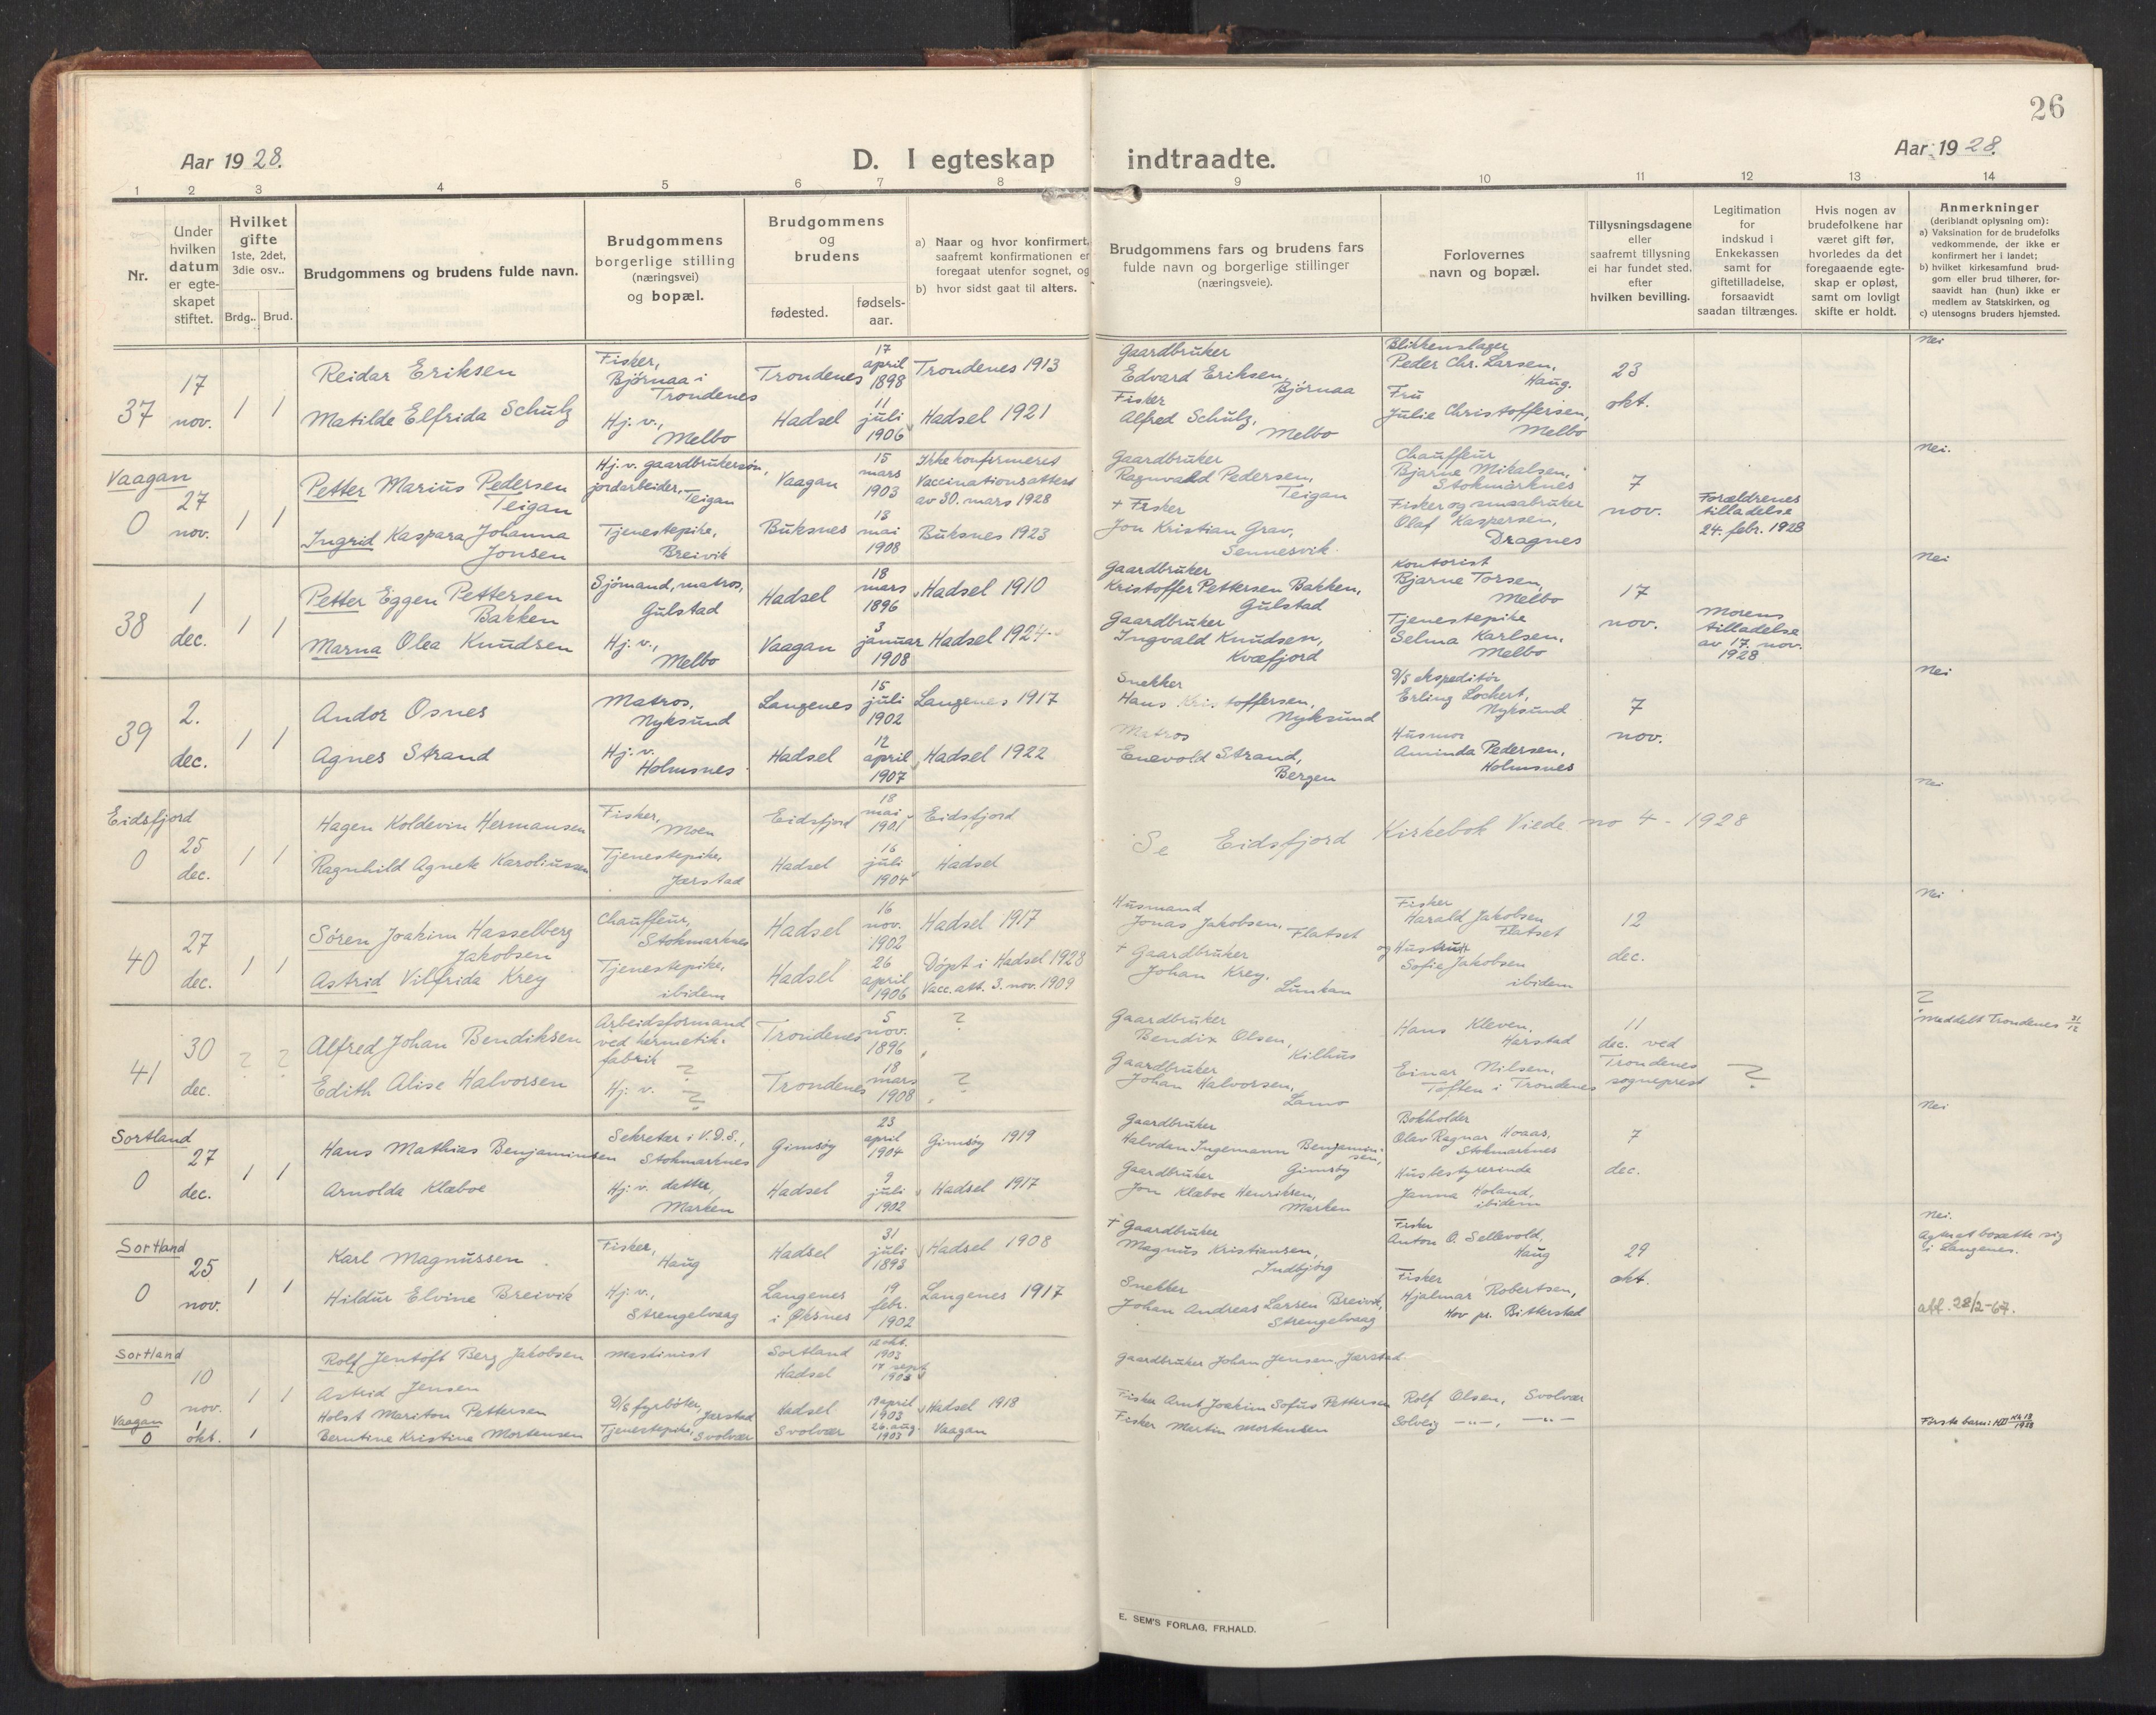 26
Aar 1928.
D. I egteskap indtraadte.
Aar 1928.
1 2 3 4 5 6 7 8 9 10 11 12 13 14
Nr.
Under hvilken datum er egteskapet stiftet.
Hvilket gifte 1ste, 2det, 3die osv..
Brdg.. Brud.
Brudgommens og brudens fulde navn.
Brudgommens borgerlige stilling (næringsvei) og bopæl.
Brudgommens og brudens
fødested.
fødselsaar.
a) Naar og hvor konfirmert, saafremt konfirmationen er foregaat utenfor sognet, og
b) hvor sidst gaat til alters.
Brudgommens fars og brudens fars fulde navn og borgerlige stillinger (næringsveie).
Forlovernes navn og bopæl.
Tillysningsdagene eller saafremt tillysning ei har fundet sted, efter hvilken bevilling.
Legitimation for indskud i Enkekassen samt for giftetilladelse, forsaavidt saadan tiltrænges.
Hvis nogen av brudefolkene har været gift før, hvorledes da det foregaaende egteskap er opløst, samt om lovligt skifte er holdt.
Anmerkninger (deriblandt oplysning om):
a) Vaksination for de brudefolks vedkommende, der ikke er konfirmert her i landet;
b) hvilket kirkesamfund brudgom eller brud tilhører, forsaavidt han (hun) ikke er medlem av Statskirken, og
c) utensogns bruders hjemsted.
37
17 nov.
1 1
Reidar Eriksen
Fisker, Bjørnaa i Trondenes
Trondenes
17 april 1898
Trondenes 1913
Gaardbruker Edvard Eriksen, Bjørnaa
Blikkenslager Peder Chr. Larsen, Haug.
23 okt.
Nei
Matilde Elfrida Schulz
Hj. v., Melbo
Hadsel
11 juli 1906
Hadsel 1921
Fisker Alfred Schulz, Melbo
Fru Julie Christoffersen, Melbo
Vaagan
0
27 nov.
1 1
Petter Marius Pedersen Teigan
Hj. v. gaardbrukersøn, jordarbeider, Teigan
Vaagan
15 mars 1903
Ikke konfirmeret Vaccinationsattest av 30. mars 1928
Gaardbruker Ragnvald Pedersen, Teigan
Chauffeur Bjarne Mikalsen, Stokmarknes
7 nov.
Forældrenes tilladelse 24. febr. 1928
Nei.
Ingrid Kaspara Johanna Jonsen
Tjenestepike, Breivik
Buksnes
13 mai 1908
Buksnes 1923
+ Fisker Jon Kristian Grav, Sennesvik.
Fisker og smaabruker Olaf Kaspersen, Dragnes
38
1 dec.
1 1
Petter Eggen Pettersen Bakken
Sjömand, matros, Gulstad
Hadsel
18 mars 1896
Hadsel 1910
Gaardbruker Kristoffer Pettersen Bakken, Gulstad
Kontorist Bjarne Torsen, Melbo
17 nov.
Morens tilladelse av 17. nov. 1928
Nei
Marna Olea Knudsen
Hj. v., Melbo
Vaagan
3 januar 1908
Hadsel 1924.
Gaardbruker Ingvald Knudsen, Kvæfjord
Tjenestepike Selma Karlsen, Melbo
39
2. dec.
1 1
Andor Osnes
Matros, Nyksund
Langenes
15 juli 1902
Langenes 1917
Snekker Hans Kristoffersen, Nyksund
D/S ekspeditör Erling Lockert, Nyksund
7 nov.
Nei
Agnes Strand
Hj. v. Holmsnes
Hadsel
12 april 1907
Hadsel 1922
Matros Enevold Strand, Bergen
Husmor Aminda Pedersen, Holmsnes
Eidsfjord
0
25 dec.
1 1
Hagen Koldevin Hermansen
Fisker, Moen
Eidsfjord
18 mai 1901
Eidsfjord
Se Eidsfjord Kirkebok Viede no 4 - 1928
Nei
Ragnhild Agnete Karoliussen
Tjenestepike, Jarstad
Hadsel
16 juli 1904
Hadsel
40
27 dec.
1 1
Søren Joakim Hasselberg Jakobsen
Chauffeur, Stokmarknes
Hadsel
16 nov. 1902
Hadsel 1917
Husmand Jonas Jakobsen, Flatset
Fisker Harald Jakobsen Flatset
12 dec.
Nei
Astrid Vilfrida Krey
Tjenestepike, ibidem
Hadsel
26 april 1906
Döpt i Hadsel 1928 Vacc. att. 3. nov. 1909
+ Gaardbruker Johan Krey, Lunkan
og Hustru Sofie Jakobsen ibidem
41
30 dec.
? ?
Alfred Johan Bendiksen
Arbeidsformand ved hermetikfabrik ?
Trondenes
5 nov. 1896
?
Gaardbruker Bendix Olsen, Kilhus
Hans Kleven, Harstad
11 dec. ved Trondenes sogneprest
?
? Meddelt Trondenes 31/12
Edith Alise Halvorsen
Hj. v. ?
Trondenes
18 mars 1908
?
Gaardbruker Johan Halvorsen, Lamo
Einar Nilsen, Toften i Trondenes
Sortland
0
27 dec.
1 1
Hans Mathias Benjaminsen
Sekretær i V.D.S., Stokmarknes
Gimsöy
23 april 1904
Gimsöy 1919
Gaardbruker Halvdan Ingemann Benjaminsen, Gimsöy
Bokholder Olav Ragnar Hoaas, Stokmarknes
7 dec.
Nei
Arnolda Klæboe
Hj. v. datter, Marken
Hadsel
9 juli 1902
Hadsel 1917
Gaardbruker Jon Klæboe Henriksen, Marken
Husbestyrerinde Janna Holand, ibidem
Sortland
0
25 nov.
1 1
Karl Magnussen
Fisker, Haug
Hadsel
31 juli 1893
Hadsel 1908
+ Gaardbruker Magnus Kristiansen, Indbjörg
Fisker Anton O. Sellevold, Haug
29 okt.
Nei. Agter at bosætte sig i Langenes.
Hildur Elvine Breivik
Hj. v., Strengelvaag
Langenes i Øksnes
19 febr. 1902
Langenes 1917
Snekker Johan Andreas Larsen Breivik, Strengelvaag
Fisker Hjalmar Robertsen, Hov pr. Bitterstad
att. 28/2-67.
Sortland
0
10 nov.
1 1
Rolf Jentoft Berg Jakobsen
Maskinist
Sortland
12 okt. 1903
Astrid Jensen
Hadsel
17 sept. 1903
Gaardbruker Johan Jensen, Jarstad.
Vaagan
0
1 okt.
1
Holst Mariton Pettersen
D/S fyrböter, Jarstad
Hadsel
19 april 1903
Hadsel 1918
Fisker Arnt Joakim Sofus Pettersen
Rolf Olsen, Svolvær
Berntine Kristine Mortensen
Tjenestepike, Svolvær
Svolvær
26. aug. 1903
Vaagan
Fisker Martin Mortensen
Solveig —„—, —„—
Første barn:
E. SEM'S FORLAG, FR.HALD.